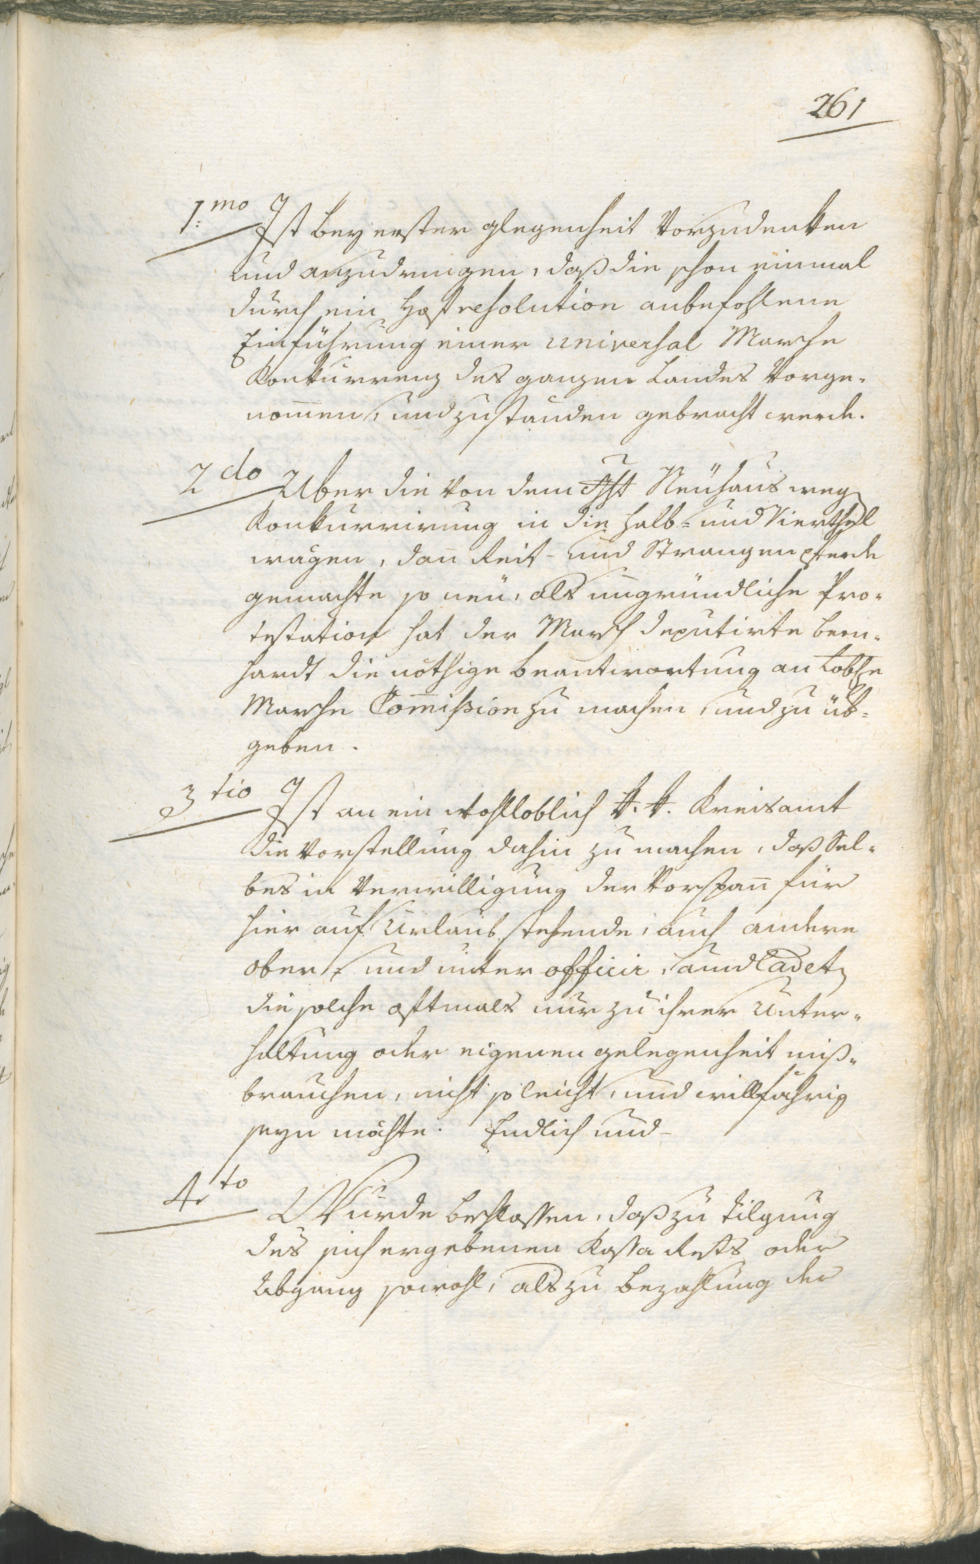 261
1.mo Ist bey erster glegenheit Vorzudenken
und anzudringen, daß die schon einmal
durch ein Hofresolution anbefohlene
Einführung einer universal Marche
Konkurrenz des ganzen Landes Vorge-
nommen, und zustanden gebracht werde.
2do Uber die von dem Neühaus weg
Konkurrirung in die halb- und Vierthel
wägen, dan Reit- und Strangenpferde
gemachte so neü, als ungründliche Pro-
testation hat der March deputirte Bern-
hardt die nöthige beantwortung an Loble
Marche Commission zu machen, und zu üb-
geben.
3tio Ist an ein Wohlloblich k. k. Kreisamt
die Vorstellung dahin zu machen, daß Sel-
bes in Verwilligung der Vorspann für
hier auf Urlaub stehende, auch andere
ober- und unter officir, und Cadet,
die solche oftmals nur zu ihrer Unter-
haltung oder eigenen gelegenheit miß-
brauchen, nicht so leicht, und willfährig
seyn möchte. Endlich und
4.to Wurde beschlossen, daß zu Tilgung
des sich ergebenen Kassa Rests oder
Abgang sowohl, als zu bezahlung der